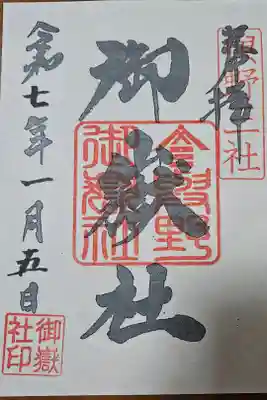 奉拝
御嶽社
御嶽社
令和七年一月五日
御嶽
社印